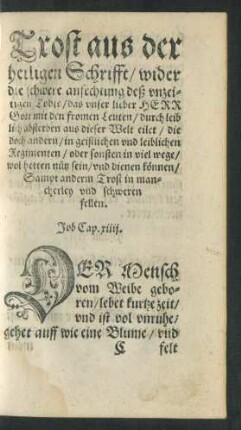 Trost aus der
heiligen Schrifft / wider
die schwere anfechtung deß vnzei-
tigen Todts / das vnser lieber HERR
Gott mit den fromen Leuten / durch leib
lich absterben aus dieser Welt eilet / die
doch andern / in geistlichen vnd leiblichen
Regimenten / oder sonsten in viel wege /
wol hetten nütz sein / vnd dienen können /
Sampt anderm Trost in man-
cherley vnd schweren
fellen.
Job Cap. xiiij.
DER Mensch
vom Weibe gebo-
ren / lebet kurtze zeit /
vnd ist vol vnruhe /
gehet auff wie eine Blume / vnd
C felt